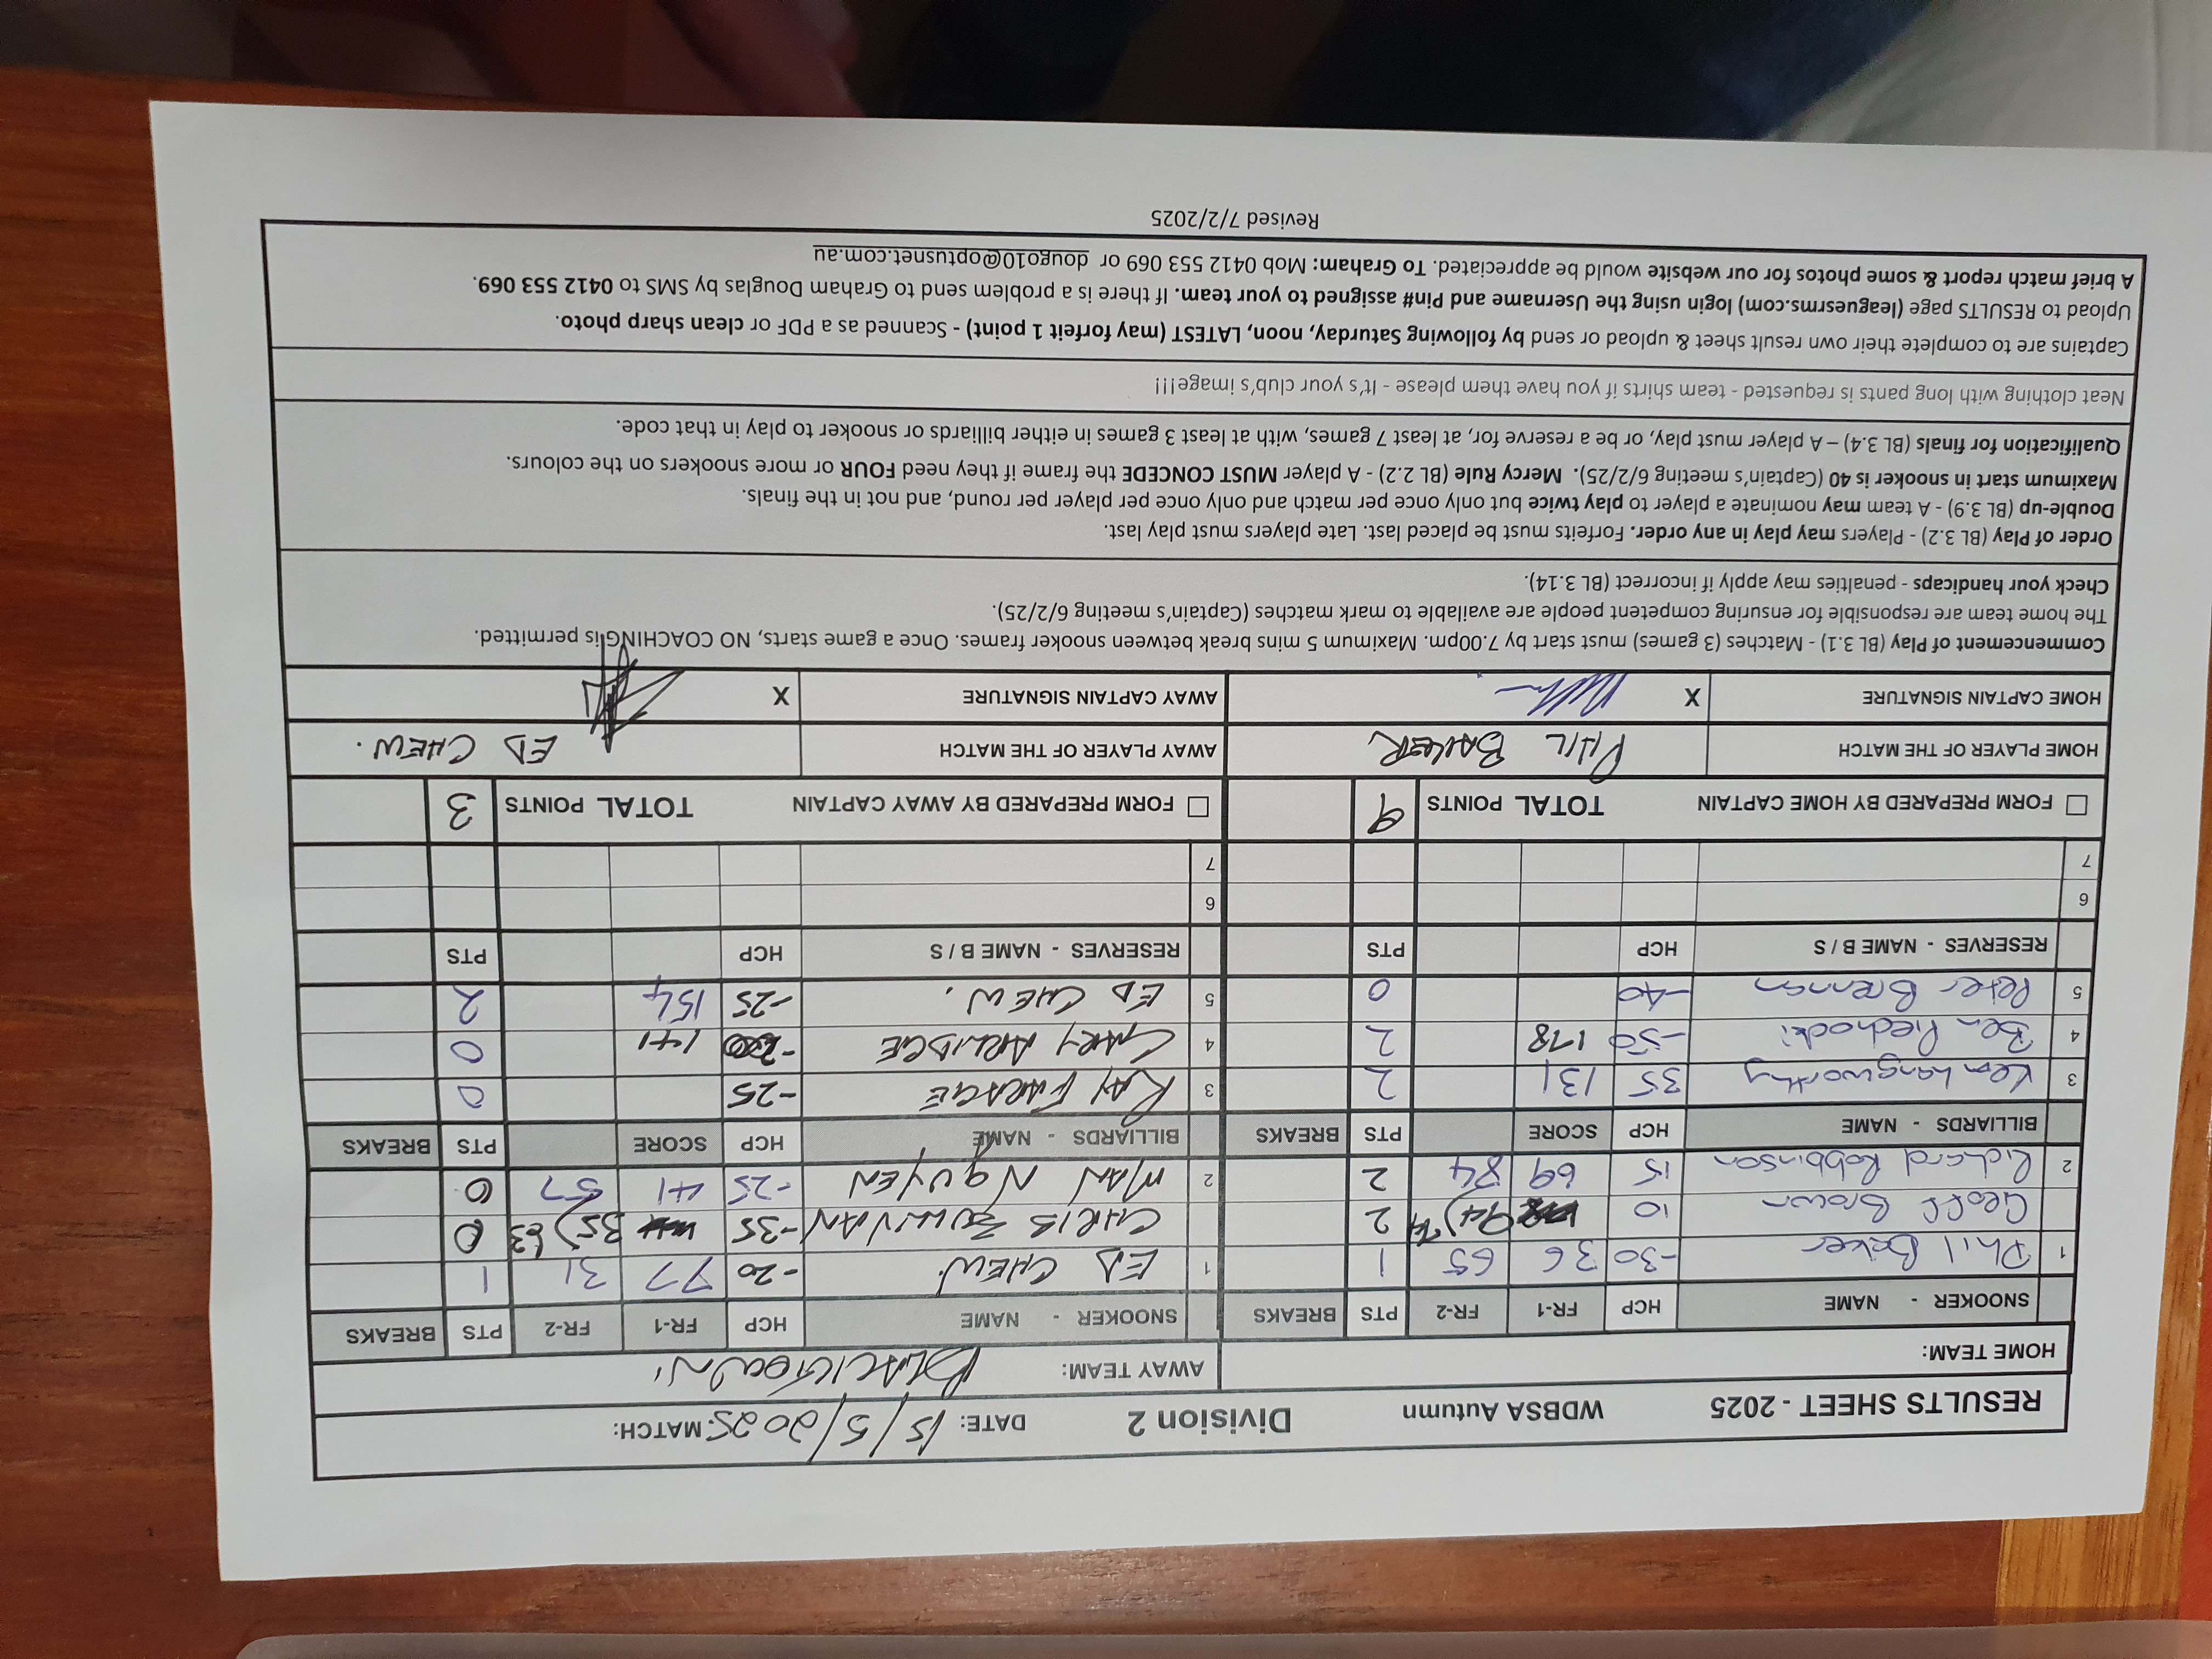 RESULTS SHEET - 2025 WDBSA Autumn Division 2 DATE: 15/5/2025 MATCH:
HOME TEAM: AWAY TEAM: BLACKTOWN
SNOOKER - NAME HCP FR-1 FR-2 PTS BREAKS SNOOKER - NAME HCP FR-1 FR-2 PTS BREAKS
1 Phil Baker -30 36 65 1 1 ED CHEW. -20 77 31 1
Geoff Brown 10 94 2 CHRIS SULLIVAN -35 35 63 0
2 Richard Robbinson 15 69 84 2 2 MAN NGUYEN -25 41 57 0
BILLIARDS - NAME HCP SCORE PTS BREAKS BILLIARDS - NAME HCP SCORE PTS BREAKS
3 Ken Langworthy 35 131 2 3 RAY FARAGE -25 0
4 Ben -50 178 2 4 GARY ARLIDGE 141 0
5 Peter Brennan -40 0 5 ED CHEW. -25 154 2
RESERVES - NAME B / S HCP PTS RESERVES - NAME B / S HCP PTS
6 6
7 7
FORM PREPARED BY HOME CAPTAIN TOTAL POINTS 9 FORM PREPARED BY AWAY CAPTAIN TOTAL POINTS 3
HOME PLAYER OF THE MATCH PHIL BAKER AWAY PLAYER OF THE MATCH ED CHEW.
HOME CAPTAIN SIGNATURE X AWAY CAPTAIN SIGNATURE X
Commencement of Play (BL 3.1) - Matches (3 games) must start by 7.00pm. Maximum 5 mins break between snooker frames. Once a game starts, NO COACHING is permitted.
The home team are responsible for ensuring competent people are available to mark matches (Captain's meeting 6/2/25).
Check your handicaps - penalties may apply if incorrect (BL 3.14).
Order of Play (BL 3.2) - Players may play in any order. Forfeits must be placed last. Late players must play last.
Double-up (BL 3.9) - A team may nominate a player to play twice but only once per match and only once per player per round, and not in the finals.
Maximum start in snooker is 40 (Captain's meeting 6/2/25). Mercy Rule (BL 2.2) - A player MUST CONCEDE the frame if they need FOUR or more snookers on the colours.
Qualification for finals (BL 3.4) – A player must play, or be a reserve for, at least 7 games, with at least 3 games in either billiards or snooker to play in that code.
Neat clothing with long pants is requested - team shirts if you have them please - It's your club's image!!!
Captains are to complete their own result sheet & upload or send by following Saturday, noon, LATEST (may forfeit 1 point) - Scanned as a PDF or clean sharp photo.
Upload to RESULTS page (leaguesrms.com) login using the Username and Pin# assigned to your team. If there is a problem send to Graham Douglas by SMS to 0412 553 069.
A brief match report & some photos for our website would be appreciated. To Graham: Mob 0412 553 069 or dougo10@optusnet.com.au
Revised 7/2/2025